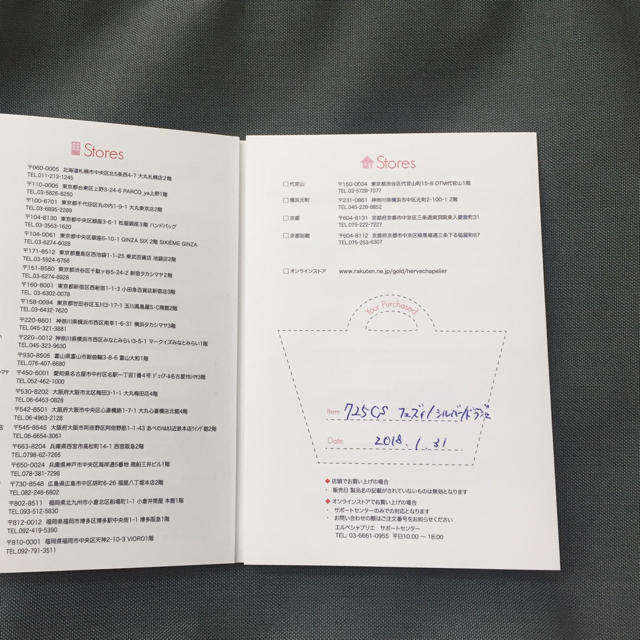 Stores
〒060-0005 北海道札幌市中央区北5条西4-7 大丸札幌店2階
TEL.011-213-1245
〒110-0005 東京都台東区上野3-24-6 PARCO_ya上野1階
TEL.03-5826-8250
〒100-6701 東京都千代田区丸の内1-9-1 大丸東京店2階
TEL.03-6895-2289
〒104-8130 東京都中央区銀座3-6-1 松屋銀座3階 ハンドバッグ
TEL.03-3563-1620
〒104-0061 東京都中央区銀座6-10-1 GINZA SIX 2階 SIXIÈME GINZA
TEL.03-6274-6028
〒171-8512 東京都豊島区西池袋1-1-25 東武百貨店 池袋店2階
TEL.03-5924-6766
〒151-8580 東京都渋谷区千駄ヶ谷5-24-2 新宿タカシマヤ2階
TEL.03-6274-8928
〒160-8001 東京都新宿区西新宿1-1-3 小田急百貨店新宿店3階
TEL. 03-6302-0078
〒158-0094 東京都世田谷区玉川3-17-1 玉川高島屋S・C南館2階
TEL.03-6432-7620
〒220-8601 神奈川県横浜市西区南幸1-6-31 横浜タカシマヤ3階
TEL.045-321-3881
〒220-0012 神奈川県横浜市西区みなとみらい3-5-1 マークイズみなとみらい1階
TEL.045-323-9630
〒930-8505 富山県富山市総曲輪3-8-6 富山大和1階
TEL.076-407-6680
〒450-6001 愛知県名古屋市中村区名駅一丁目1番4号 ジェイアール名古屋タカシマヤ3階
TEL.052-462-1000
〒530-8202 大阪府大阪市北区梅田3-1-1 大丸梅田店4階
TEL.06-6453-0828
〒542-8501 大阪府大阪市中央区心斎橋筋1-7-1 大丸心斎橋店北館4階
TEL.06-4963-2128
〒545-8545 大阪府大阪市阿倍野区阿倍野筋1-1-43 あべのハルカス近鉄本店ウイング館2階
TEL.06-6654-3061
〒663-8204 兵庫県西宮市高松町14-1 西宮阪急2階
TEL.0798-62-7265
〒650-0024 兵庫県神戸市中央区海岸通5番地 商船三井ビル1階
TEL.078-381-7298
〒730-8548 広島県広島市中区胡町6-26 福屋八丁堀本店2階
TEL.082-246-6802
〒802-8511 福岡県北九州市小倉北区船場町1-1 小倉井筒屋 本館1階
TEL.093-512-5830
〒812-0012 福岡県福岡市博多区博多駅中央街1-1 博多阪急1階
TEL.092-419-5390
〒810-0001 福岡県福岡市中央区天神2-10-3 VIORO1階
TEL.092-791-3511
Stores
代官山 〒150-0034 東京都渋谷区代官山町15-8 OTM代官山1階
TEL.03-5728-7077
横浜元町 〒231-0861 神奈川県横浜市中区元町2-100-1 2階
TEL.045-228-8852
京都 〒604-8131 京都府京都市中京区三条通烏丸東入梅忠町31
TEL.075-222-7227
京都別館 〒604-8112 京都府京都市中京区柳馬場通三条下る槌屋町87
TEL.075-253-6307
オンラインストア www.rakuten.ne.jp/gold/hervechapelier
Your Purchased
Item 725CS フューズィ/シルバードラジェ
Date 2018.1.31
◆ 店頭でお買い上げの場合
・ 販売日 製品名の記載がされていないものは無効となります
◆ オンラインストアでお買い上げの場合
・ サポートセンターのみでの対応となります
・ お問い合わせの際はご注文番号をお知らせください
エルベシャプリエ サポートセンター
TEL: 03-6661-0955 平日10:00 ～ 18:00